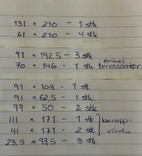 131 x 210 - 1 stk
61 x 210 - 4 stk
91 x 142,5 - 3 stk
70 x 146 - 1 stk
enkel
terrassedør
91 x 103 - 1 stk
91 x 62,5 - 1 stk
99 x 50 - 2 stk
111 x 171 - 1 stk
41 x 171 - 2 stk
karnapp-
vindu
23,5 x 93,5 - 3 stk